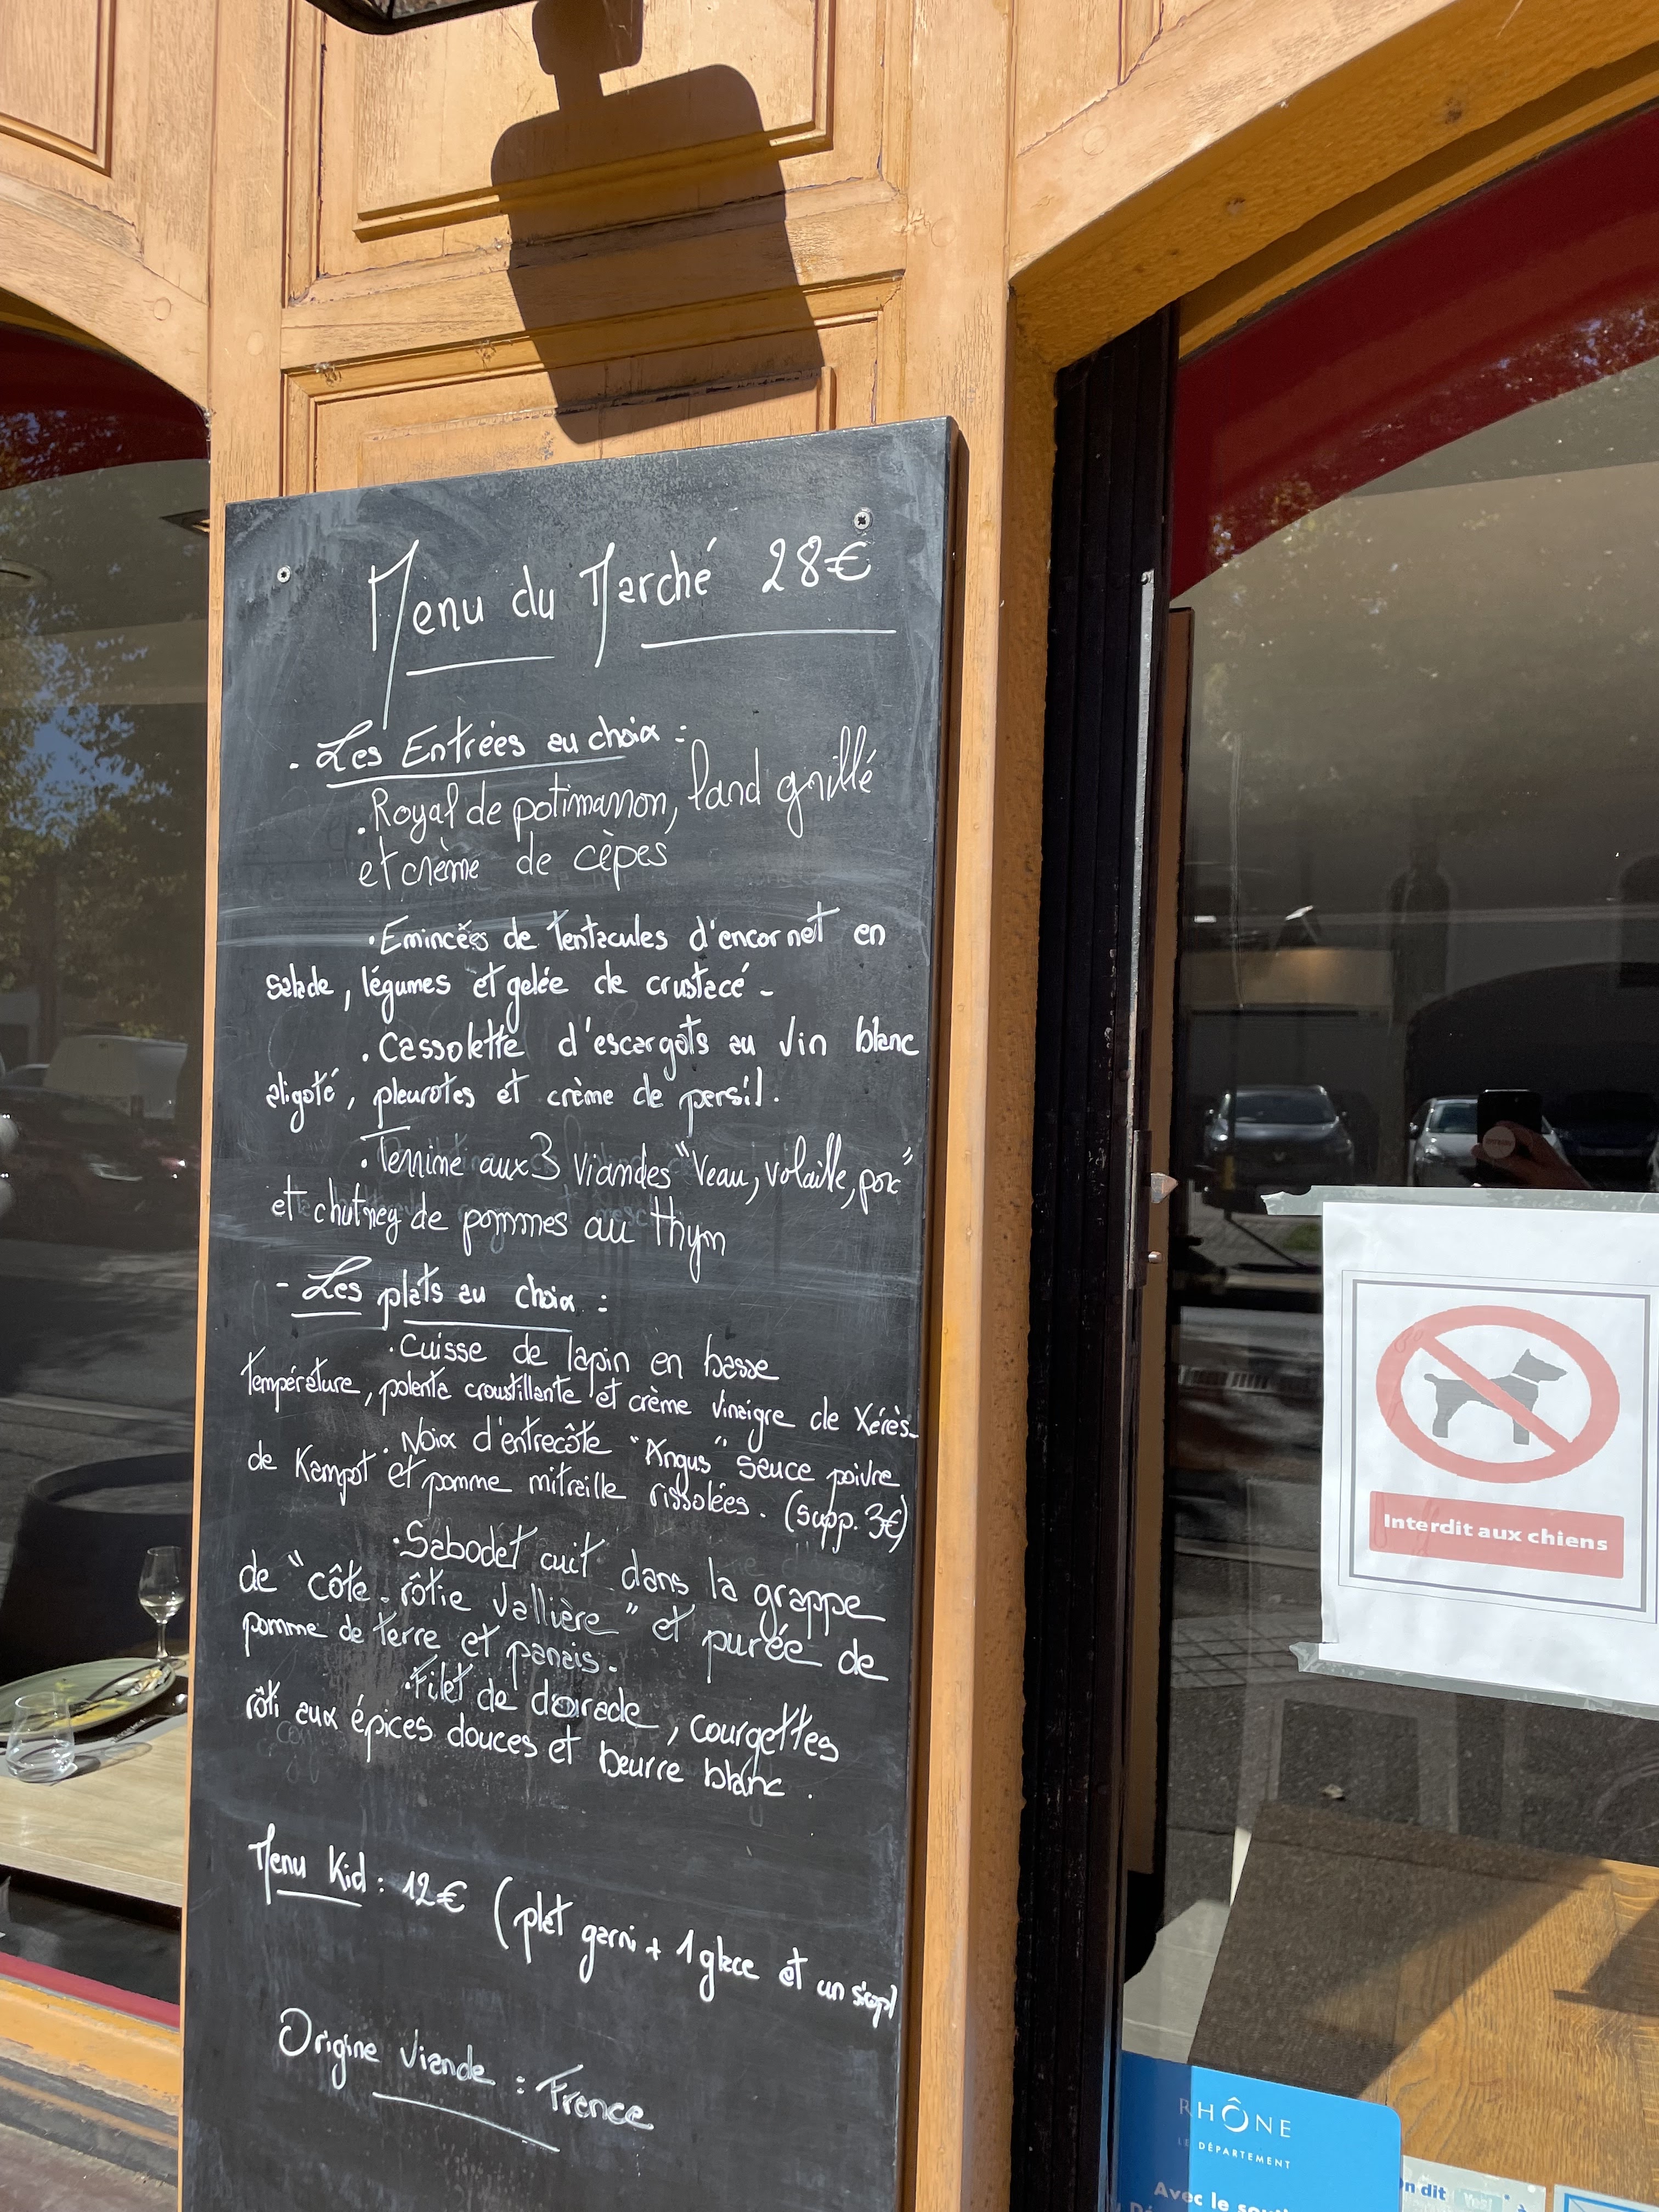 Menu du Marché 28€
- Les Entrées au choix :
. Royal de potimarron, lard grillé
et crème de cèpes
. Emincées de tentacules d'encornet en
salade, légumes et gelée de crustacé -
. Cassolette d'escargots au vin blanc
aligoté, pleurotes et crème de persil.
. Terrine aux 3 viandes "Veau, volaille, porc"
et chutney de pommes au thym
- Les plats au choix :
. Cuisse de lapin en basse
température, polenta croustillante et crème vinaigre de Xérès-
. Noix d'entrecôte "Angus" sauce poivre
de Kampot et pomme mitraille rissolées. (supp. 3€)
. Sabodet cuit dans la grappe
de "côte-rôtie Vallière" et purée de
pomme de terre et panais.
. Filet de daurade, courgettes
rôti aux épices douces et beurre blanc.
Menu Kid : 12€ (plat garni + 1 glace et un sirop)
Origine viande : France
Interdit aux chiens
RHÔNE
LE DÉPARTEMENT
Avec le
on dit